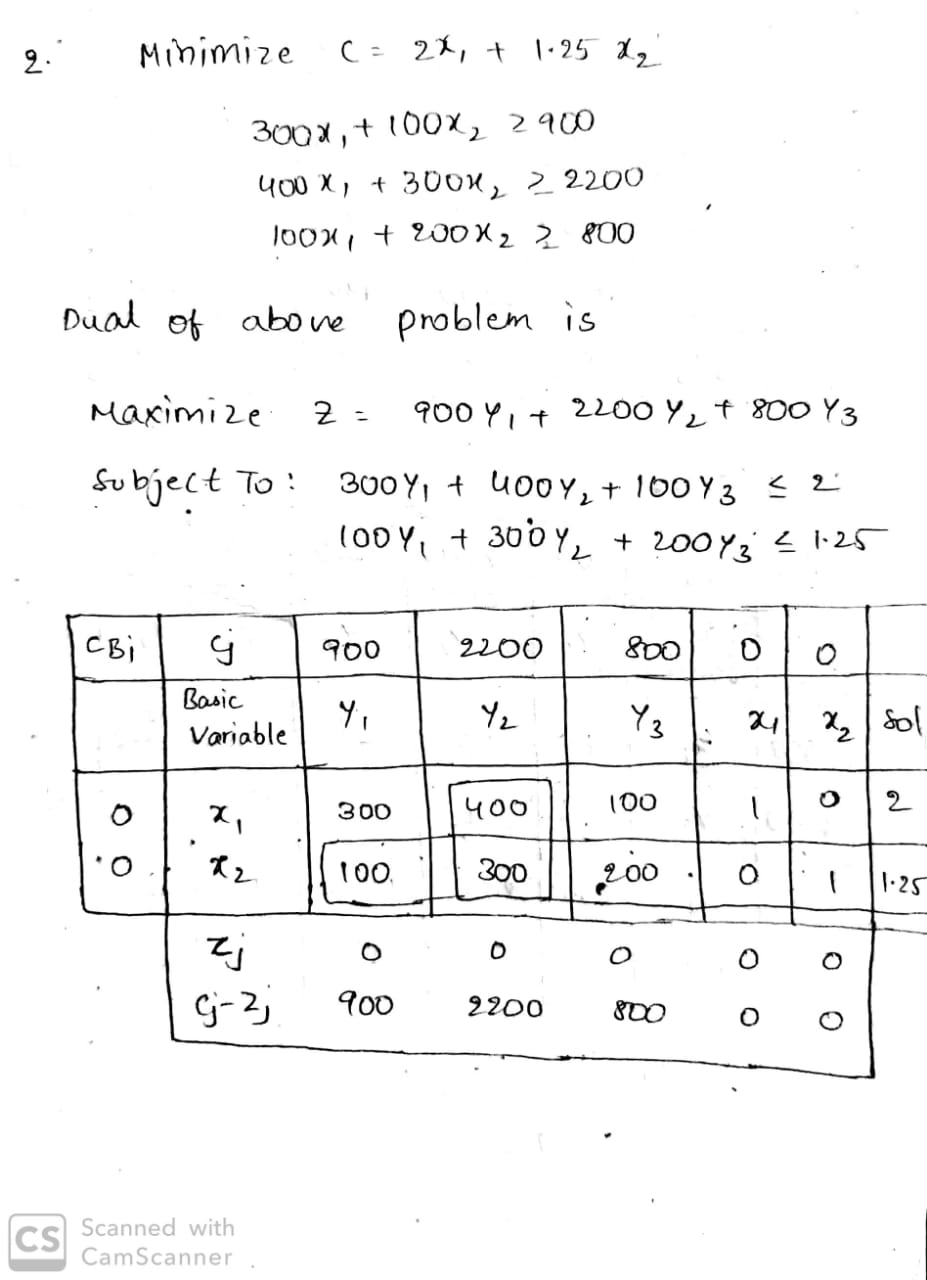 2. Minimize C = 2x₁ + 1.25 x₂
300x₁ + 100x₂ ≥ 900
400x₁ + 300x₂ ≥ 2200
100x₁ + 200x₂ ≥ 800
Dual of above problem is
Maximize Z = 900Y₁ + 2200Y₂ + 800Y₃
Subject To: 300Y₁ + 400Y₂ + 100Y₃ ≤ 2
100Y₁ + 300Y₂ + 200Y₃ ≤ 1.25
CBi Cj 900 2200 800 0 0
Basic Variable Y₁ Y₂ Y₃ x₁ x₂ Sol
0 x₁ 300 400 100 1 0 2
0 x₂ 100 300 200 0 1 1.25
Zj 0 0 0 0 0
Cj-Zj 900 2200 800 0 0
CS Scanned with
CamScanner